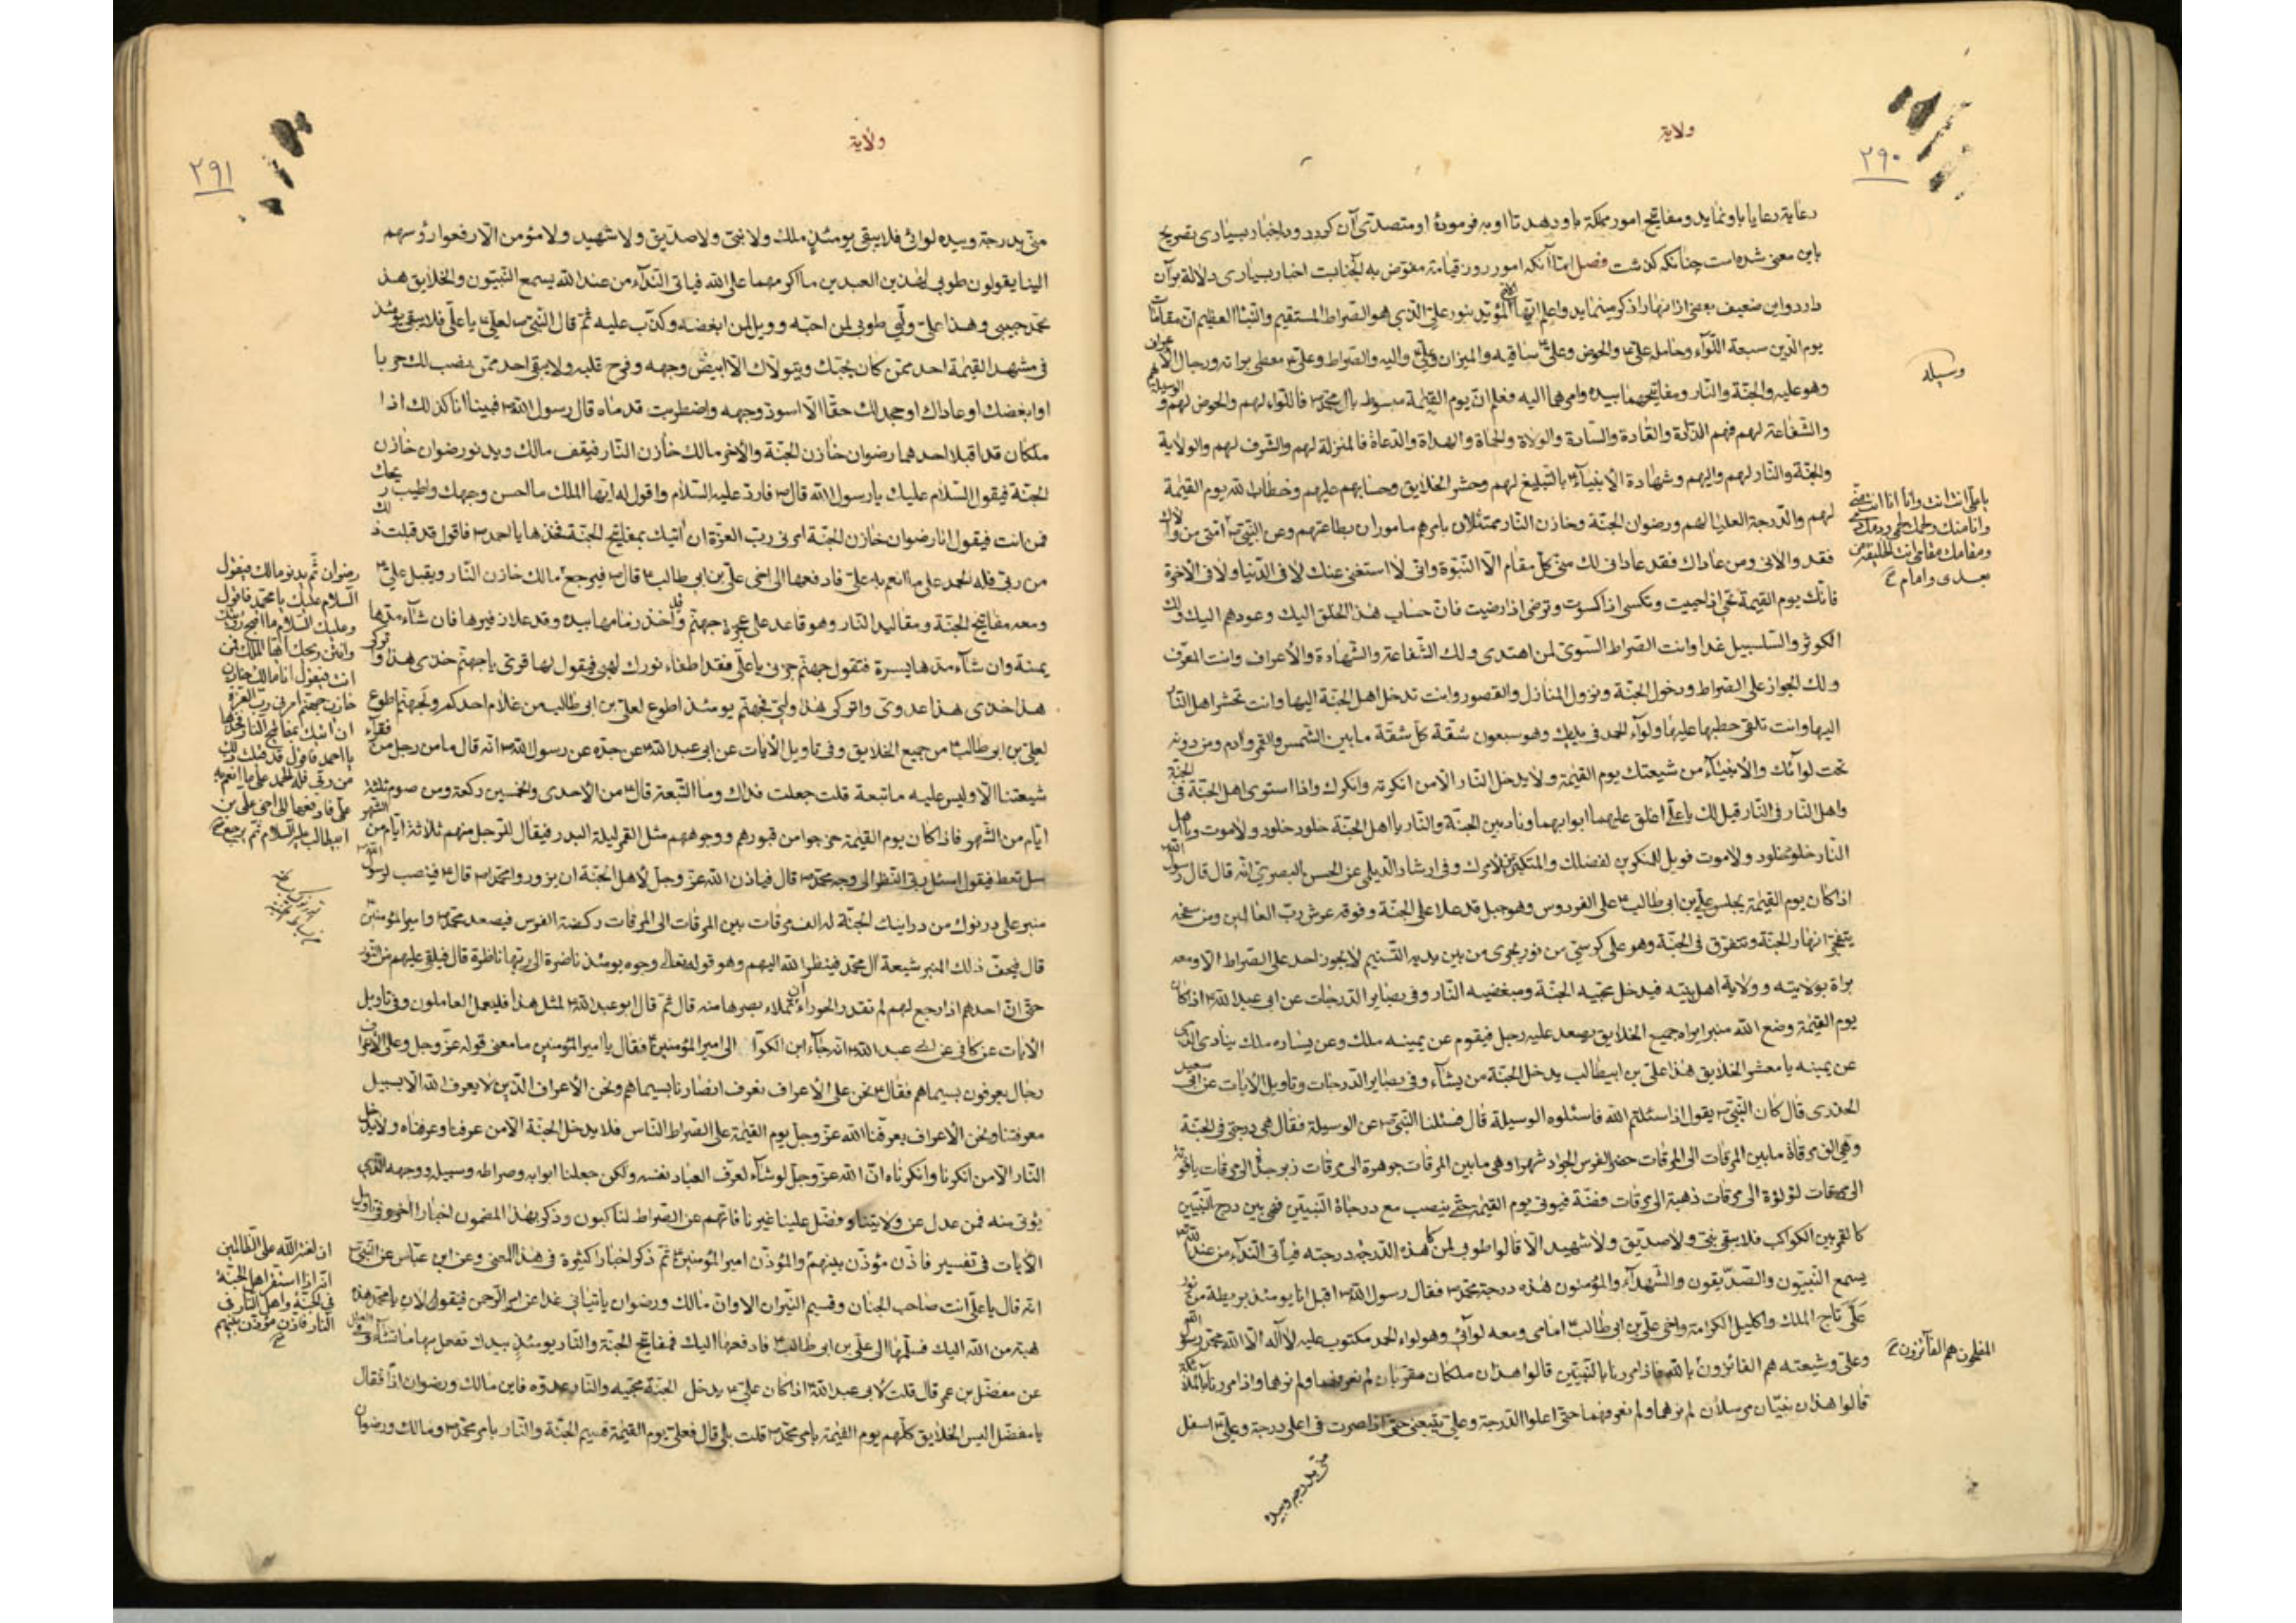 ولاية
٢٩٠
رعاية رعايا باو نمايد ومفاتيح امور مملكة باو دهد تا او به فرمودهٔ او متصدّى آن كردد ودر اخبار بسيارى تصريح
باين معنى شده است چنانكه كذشت فصل امّا آنكه امور روز قيامة مفوّض به آنجنابت اخبار بسيارى دلالة بر آن
دارد واين ضعيف بعضى از انها را ذكر مينمايد واعلم ايّها الاخ المؤيّد بنور علىّ الذى هو الصّراط المستقيم والنّبأ العظيم انّ مقامات
يوم الدّين سبعة اللّوآء وحامله علىّ ع والحوض وعلىّ ع ساقيه والميزان وعلىّ ع واليه والصّراط وعلىّ ع معطى براته ورجال الاعراف
وهو عليه والجنّة والنّار ومفاتيحهما بيده وامرهما اليه فعلم انّ يوم القيٰمة مبسوط بال محمّد ص فاللّواء لهم والحوض لهم والوسيلة لهم
وسيله
والشّفاعة لهم فهم الذّادة والقادة والسّادة والولاة والحماة والهداة والدّعاة فالمنزلة لهم والشّرف لهم والولاية
والجنّة والنّار لهم واليهم وشهادة الأنبيآء ع بالتّبليغ لهم وحشر الخلايق وحسابهم عليهم وخطاب الله يوم القيٰمة
لهم والدّرجة العليا لهم ورضوان الجنّة وخازن النّار ممتثلان بامرهم مأموران بطاعتهم وعن النّبىّ ص انّه من والاك
يا علىّ انت انت وانا انا انت منّى
وانا منك ولحمك لحمى ودمك دمى
ومقامك مقامى انت الخليفة من
بعدى وامام ح
فقد والانى ومن عاداك فقد عادانى لك منّى كلّ مقام الّا النّبوّة وانّى لا استغنى عنك لا فى الدّنيا ولا فى الآخرة
فانّك يوم القيٰمة تحيٰى اذا حييت وتكسى اذا كسوت وترضى اذا رضيت فانّ حساب هذا الخلق اليك وعودهم اليك ولك
الكوثر والسّلسبيل غدا وانت الصّراط السّوىّ لمن اهتدى ولك الشّفاعة والشّهادة والأعراف وانت المعرّف
ولك الجواز على الصّراط ودخول الجنّة ونزول المنازل والقصور وانت تدخل اهل الجنّة اليها وانت تحشر اهل النّار
اليها وانت تلقى حطبها عليها ولوآء الحمد فى يديك وهو سبعون شقّة كلّ شقّة ما بين الشّمس والقمر وآدم ومن دونه
تحت لوآئك والأنبيآء من شيعتك يوم القيٰمة ولا يدخل النّار الّا من انكرته وانكرك واذا استوى اهل الجنّة فى الجنّة
واهل النّار فى النّار قيل لك يا علىّ اغلق عليهما ابوابهما وناد بين الجنّة والنّار يا اهل الجنّة خلود خلود ولا موت ويا اهل
النّار خلود خلود ولا موت فويل للمنكرين لفضلك والمتكبّرين لامرك وفى ارشاد الدّيلمى عن الحسن البصرىّ انّه قال قال رسول الله ص
اذا كان يوم القيٰمة يجلس علىّ بن ابى طالب ع على الفردوس وهو جبل قد علا على الجنّة وفوقه عرش ربّ العالمين ومن سفحه
يتفجّر انهار الجنّة وتتفرّق فى الجنّة وهو على كرسىّ من نور يجرى من بين يديه التّسنيم لا يجوز احد على الصّراط الّا ومعه
براة بولايته وولاية اهل بيته فيدخل محبّيه الجنّة ومبغضيه النّار وفى بصاير الدّرجات عن ابى عبد الله ع اذا كان
يوم القيٰمة وضع الله منبرا يراه جميع الخلايق يصعد عليه رجل فيقوم عن يمينه ملك وعن يساره ملك ينادى الذى
عن يمينه يا معشر الخلايق هذا علىّ بن ابيطالب يدخل الجنّة من يشآء وفى بصاير الدّرجات وتاويل الآيات عن ابى سعيد
الخدرى قال كان النّبىّ ص يقول اذا سئلتم الله فاسئلوه الوسيلة قال فسئلنا النّبىّ ص عن الوسيلة فقال هى درجتى فى الجنّة
وهى الف مرقاة ما بين المرقات الى المرقات حضر الفرس الجواد شهرا وهى ما بين المرقات جوهرة الى مرقات زبرجد الى مرقات ياقوتة
الى مرقات لؤلؤة الى مرقات ذهبة الى مرقات وفضّة فيوتى يوم القيٰمة حتّى ينصب مع درجاة النّبيّين فهى بين درج النّبيّين
كالقمر بين الكواكب فلا يبقى نبىّ ولا صدّيق ولا شهيد الّا قالوا طوبى لمن كان هذه الدّرجة درجته فيأتى النّدآء من عند الله
يسمع النّبيّون والصّدّيقون والشّهدآء والمؤمنون هذه درجة محمّد ص فقال رسول الله ص اقبل انا يومئذ بريطة من نور
علَىّ تاج الملك واكليل الكرامة واخى علىّ بن ابى طالب ع امامى ومعه لوآئى وهو لواء الحمد مكتوب عليه لا اله الّا الله محمّد رسول الله
المفلحون هم الفآئزون ح
وعلىّ وشيعته هم الفائزون بالله فاذا مررنا بالنّبيّين قالوا هذان ملكان مقرّبان لم نعرفهما ولم نرهما واذا مررنا بالملائكة
قالوا هذان نبيّان مرسلان لم نرهما ولم نعرفهما حتّى اعلوا الدّرجة وعلىّ يتبعنى حتّى اذا صرت فى اعلى درجة وعلىّ ع اسفل
منّى بدرجة وبيده
ولاية
٢٩١
منّى بدرجة وبيده لوائى فلا يبقى يومئذٍ ملك ولا نبىّ ولا صدّيق ولا شهيد ولا مؤمن الّا رفعوا رؤسهم
الينا يقولون طوبى لهذين العبدين ما اكرمهما على الله فياتى النّدآء من عند الله يسمع النّبيّون والخلايق هذا
محمّد حبيبى وهذا علىّ وليّى طوبى لمن احبّه وويل لمن ابغضه وكذب عليه ثمّ قال النّبىّ ص لعلىّ ع يا علىّ فلا يبقى يومئذ
فى مشهد القيٰمة احد ممّن كان يحبّك ويتولّاك الّا ابيضّ وجهه وفرح قلبه ولا يبقى احد ممّن نصب لك حربا
او ابغضك او عاداك او جحد لك حقّا الّا اسودّ وجهه واضطربت قدماه قال رسول الله ص فبينا انا كذلك اذا
ملكان قد اقبلا احدهما رضوان خازن الجنّة والأخر مالك خازن النّار فيقف مالك ويدنو رضوان خازن
الجنّة فيقول السّلام عليك يا رسول الله قال ص فاردّ عليه السّلام واقول له ايّها الملك ما احسن وجهك واطيب ريحك
فمن انت فيقول انا رضوان خازن الجنّة امرنى ربّ العزّة ان اٰتيك بمفاتيح الجنّة فخذها يا احمد ص فاقول قد قبلت ذلك
من ربّى فله الحمد على ما انعم به علىّ فادفعها الى اخى علىّ بن ابى طالب ع قال ص فيرجع مالك خازن النّار ويقبل علىّ ع
رضوان ثمّ يدنو مالك فيقول
السّلام عليك يا محمّد فاقول
وعليك السّلام ما اقبح رؤيتك
وانتن ريحك ايّها الملك فمن
انت فيقول انا مالك خازن
خازن جهنّم امرنى ربّ العزّة
ان اتيك بمفاتيح النّار فخذها
يا احمد فاقول قد قبلت ذلك
من ربّى فله الحمد على ما انعم به
علىّ فادفعها الى اخى علىّ بن
ابيطالب عليه السّلام ثمّ يرجع ح
ومعه مفاتيح الجنّة ومقاليد النّار وهو قاعد على عجزة جهنّم قد واخذ زمامها بيده وقد علا زفيرها فان شآء مدّها
يمنة وان شآء مدّها يسرة فتقول جهنّم جزنى يا علىّ فقد اطفاء نورك لهبى فيقول لها قرّى يا جهنّم خذى هذا واتركى
هذا خذى هذا عدوّى واتركى هذا وليّى فجهنّم يومئذ اطوع لعلىّ بن ابى طالب من غلام احدكم ولجهنّم اطوع
لعلىّ بن ابى طالب ع من جميع الخلايق وفى تاويل الأيات عن ابى عبد الله ع عن جدّه عن رسول الله ص انّه قال ما من رجل من فقرآء
شيعتنا الّا وليس عليه ماتبعة قلت جعلت فداك وما التّبعة قال ع من الأحدى والخمسين ركعة ومن صوم ثلثة
ايّام من الشّهر فاذا كان يوم القيٰمة خرجوا من قبورهم ووجوههم مثل القمر ليلة البدر فيقال للرّجل منهم ثلاثة ايّام من الشهر
سل تعط فيقول اسئل ربّى النّظر الى وجه محمّد ص قال فياذن الله عزّ وجلّ لأهل الجنّة ان يزوروا محمّدا ص قال ع فينصب لرسول الله ص
منبر على درنوك من درانيك الجنّة له الف مرقات بين المرقات الى المرقات ركضة الفرس فيصعد محمّد ص وامير المؤمنين ع
قال فيحفّ ذلك المنبر شيعة ال محمّد فينظر الله اليهم وهو قوله تعالى وجوه يومئذ ناضرة الى ربّها ناظرة قال فيلقى عليهم من النّور
حتّى انّ احدهم اذا رجع لهم لم تقدر الحوراء ان تملاء بصرها منه قال ثمّ قال ابو عبد الله ع لمثل هذا فليعمل العاملون وفى تاويل
الأيات عن كافى عن ابى عبد الله ع انّه جآء ابن الكوّا الى امير المؤمنين ع فقال يا امير المؤمنين ما معنى قوله عزّ وجل وعلى الأعراف
رجال يعرفون بسيماهم فقال ع نحن على الأعراف نعرف انصارنا بسيماهم ونحن الأعراف الّذين لا يعرف الله الّا بسبيل
معرفتنا ونحن الأعراف يعرّفنا الله عزّ وجلّ يوم القيٰمة على الصّراط النّاس فلا يدخل الجنّة الّا من عرفنا وعرفناه ولا يدخل
النّار الّا من انكرنا وانكرناه انّ الله عزّ وجلّ لو شآء لعرّف العباد نفسه ولكن جعلنا ابوابه وصراطه وسبيله ووجهه الّذى
يؤتى منه فمن عدل عن ولايتنا وفضّل علينا غيرنا فانّهم عن الصّراط لناكبون وذكر بهذا المضمون اخبارا اخر وفى تاويل
الأيات فى تفسير فاذّن مؤذّن بينهم والمؤذّن امير المؤمنين ع ثمّ ذكر اخبارا كثيرة فى هذا المعنى وعن ابن عبّاس عن النّبىّ ص
ان لعنة الله على الظّالمين
انّه اذا استقرّ اهل الجنّة
فى الجنّة واهل النّار فى
النّار فاذّن مؤذّن بينهم
ح
انّه قال يا علىّ انت صاحب الجنان وقسيم النّيران الا وانّ مالك ورضوان ياتيانى غدا عن امر الرّحمن فيقولان يا محمّد هذه
هبة من الله اليك فسلّمها الى علىّ بن ابى طالب ع فادفعها اليك فمفاتيح الجنّة والنّار يومئذٍ بيدك تفعل بها ما تشآء وفى
عن مفضّل بن عمر قال قلت لأبى عبد الله ع اذا كان علىّ ع يدخل الجنّة محبّيه والنّار عدوّه فاين مالك ورضوان اذاً فقال
يا مفضّل اليس الخلايق كلّهم يوم القيٰمة بامر محمّد ص قلت بلى قال فعلىّ ع يوم القيٰمة قسيم الجنّة والنّار بامر محمّد ص ومالك ورضوان